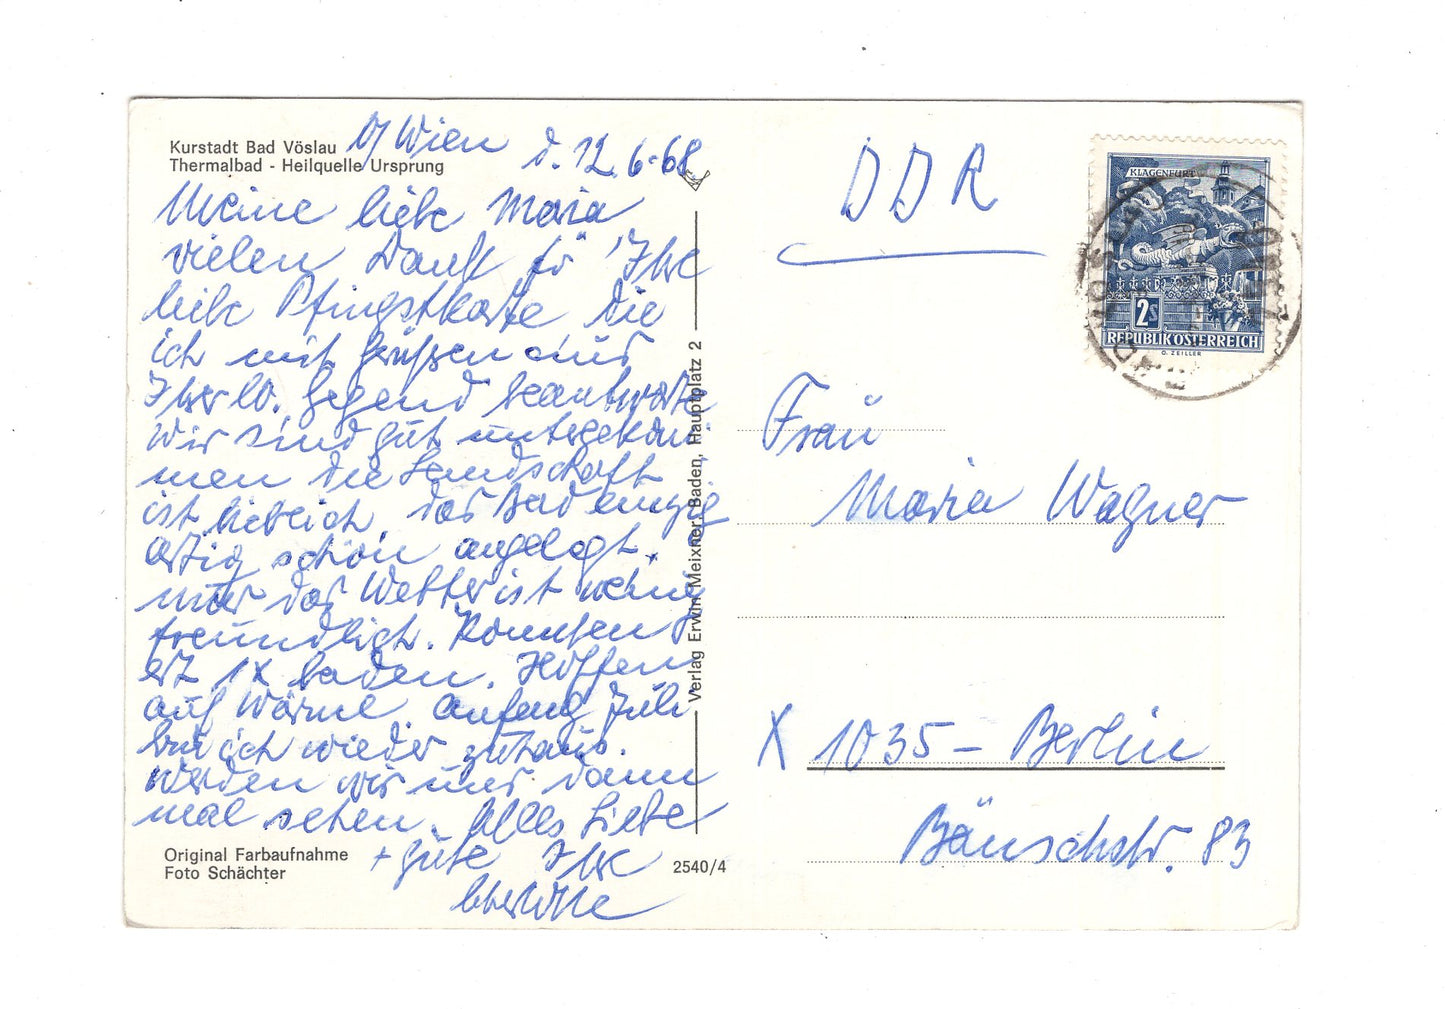 Kurstadt Bad Vöslau
Thermalbad - Heilquelle Ursprung
b/ Wien d. 12.6.68
Meine liebe Maria
vielen Dank fü Ihre
liebe Pfingstkarte die
ich mit Grüßen aus
Ihrer Gegend beantworte
wir sind gut untergekom
men die Landschaft
ist lieblich, das Bad einzig
artig schön angelegt.
nur das Wetter ist wenig
freundlich. Konnten
erst 1x baden. Hoffen
auf Wärme Anfang Juli
bin ich wieder zuhaus.
Werden wir uns dann
mal sehen. Alles Liebe
+ Gute Ihre
Original Farbaufnahme
Foto Schächter
2540/4
Verlag Erwin Meixner, Baden, Hauptplatz 2
DDR
KLAGENFURT
2S
REPUBLIK ÖSTERREICH
O. ZEILLER
Frau
Maria Wagner
X 1035 - Berlin
Bänschstr. 83